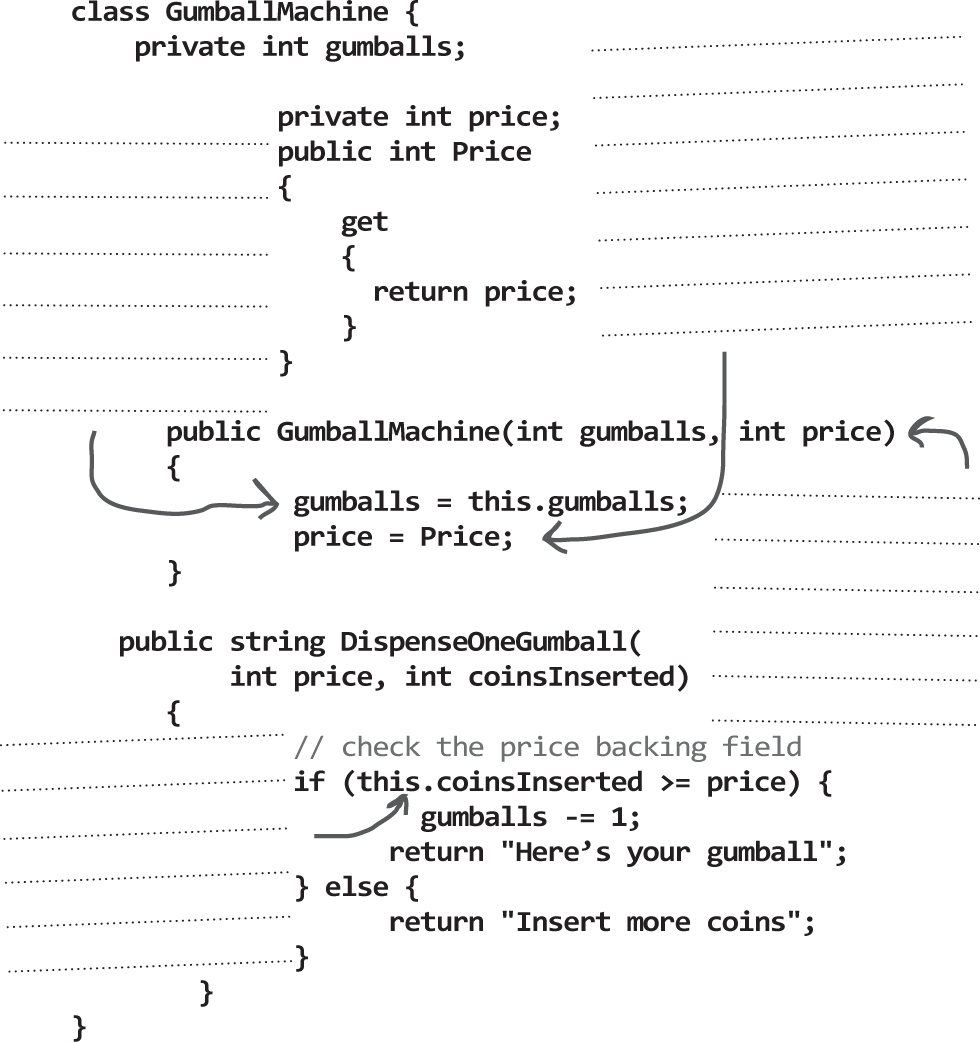 class GumballMachine {
private int gumballs;
private int price;
public int Price
{
get
{
return price;
}
}
public GumballMachine(int gumballs, int price)
{
gumballs = this.gumballs;
price = Price;
}
public string DispenseOneGumball(
int price, int coinsInserted)
{
// check the price backing field
if (this.coinsInserted >= price) {
gumballs -= 1;
return "Here’s your gumball";
} else {
return "Insert more coins";
}
}
}